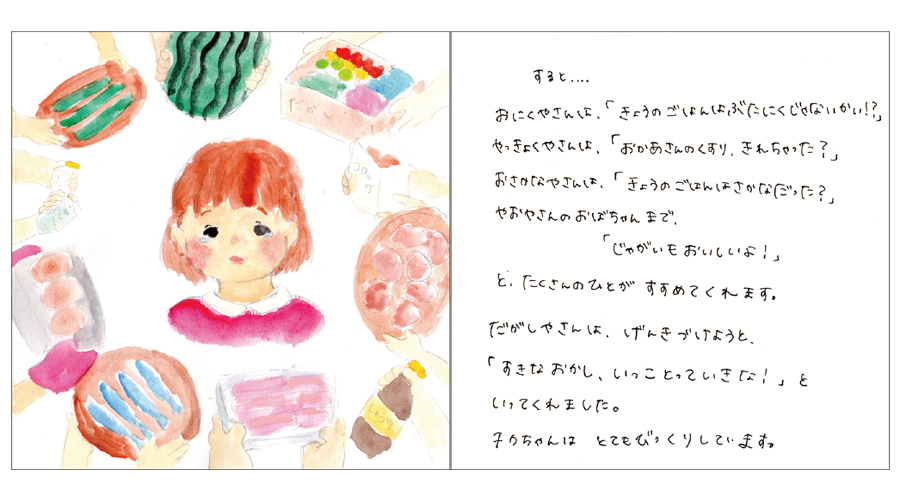 だがし
コロッケ
すると....
おにくやさんは、「きょうのごはんはぶたにくじゃないかい!?」
やっきょくやさんは、「おかあさんのくすり、きれちゃった?」
おさかなやさんは、「きょうのごはんはさかなだった?」
やおやさんのおばちゃんまで、
「じゃがいもおいしいよ!」
と、たくさんのひとが すすめてくれます。
だがしやさんは、げんきづけようと、
「すきなおかし、いっことっていきな!」と
いってくれました。
子カちゃんは とてもびっくりしています。